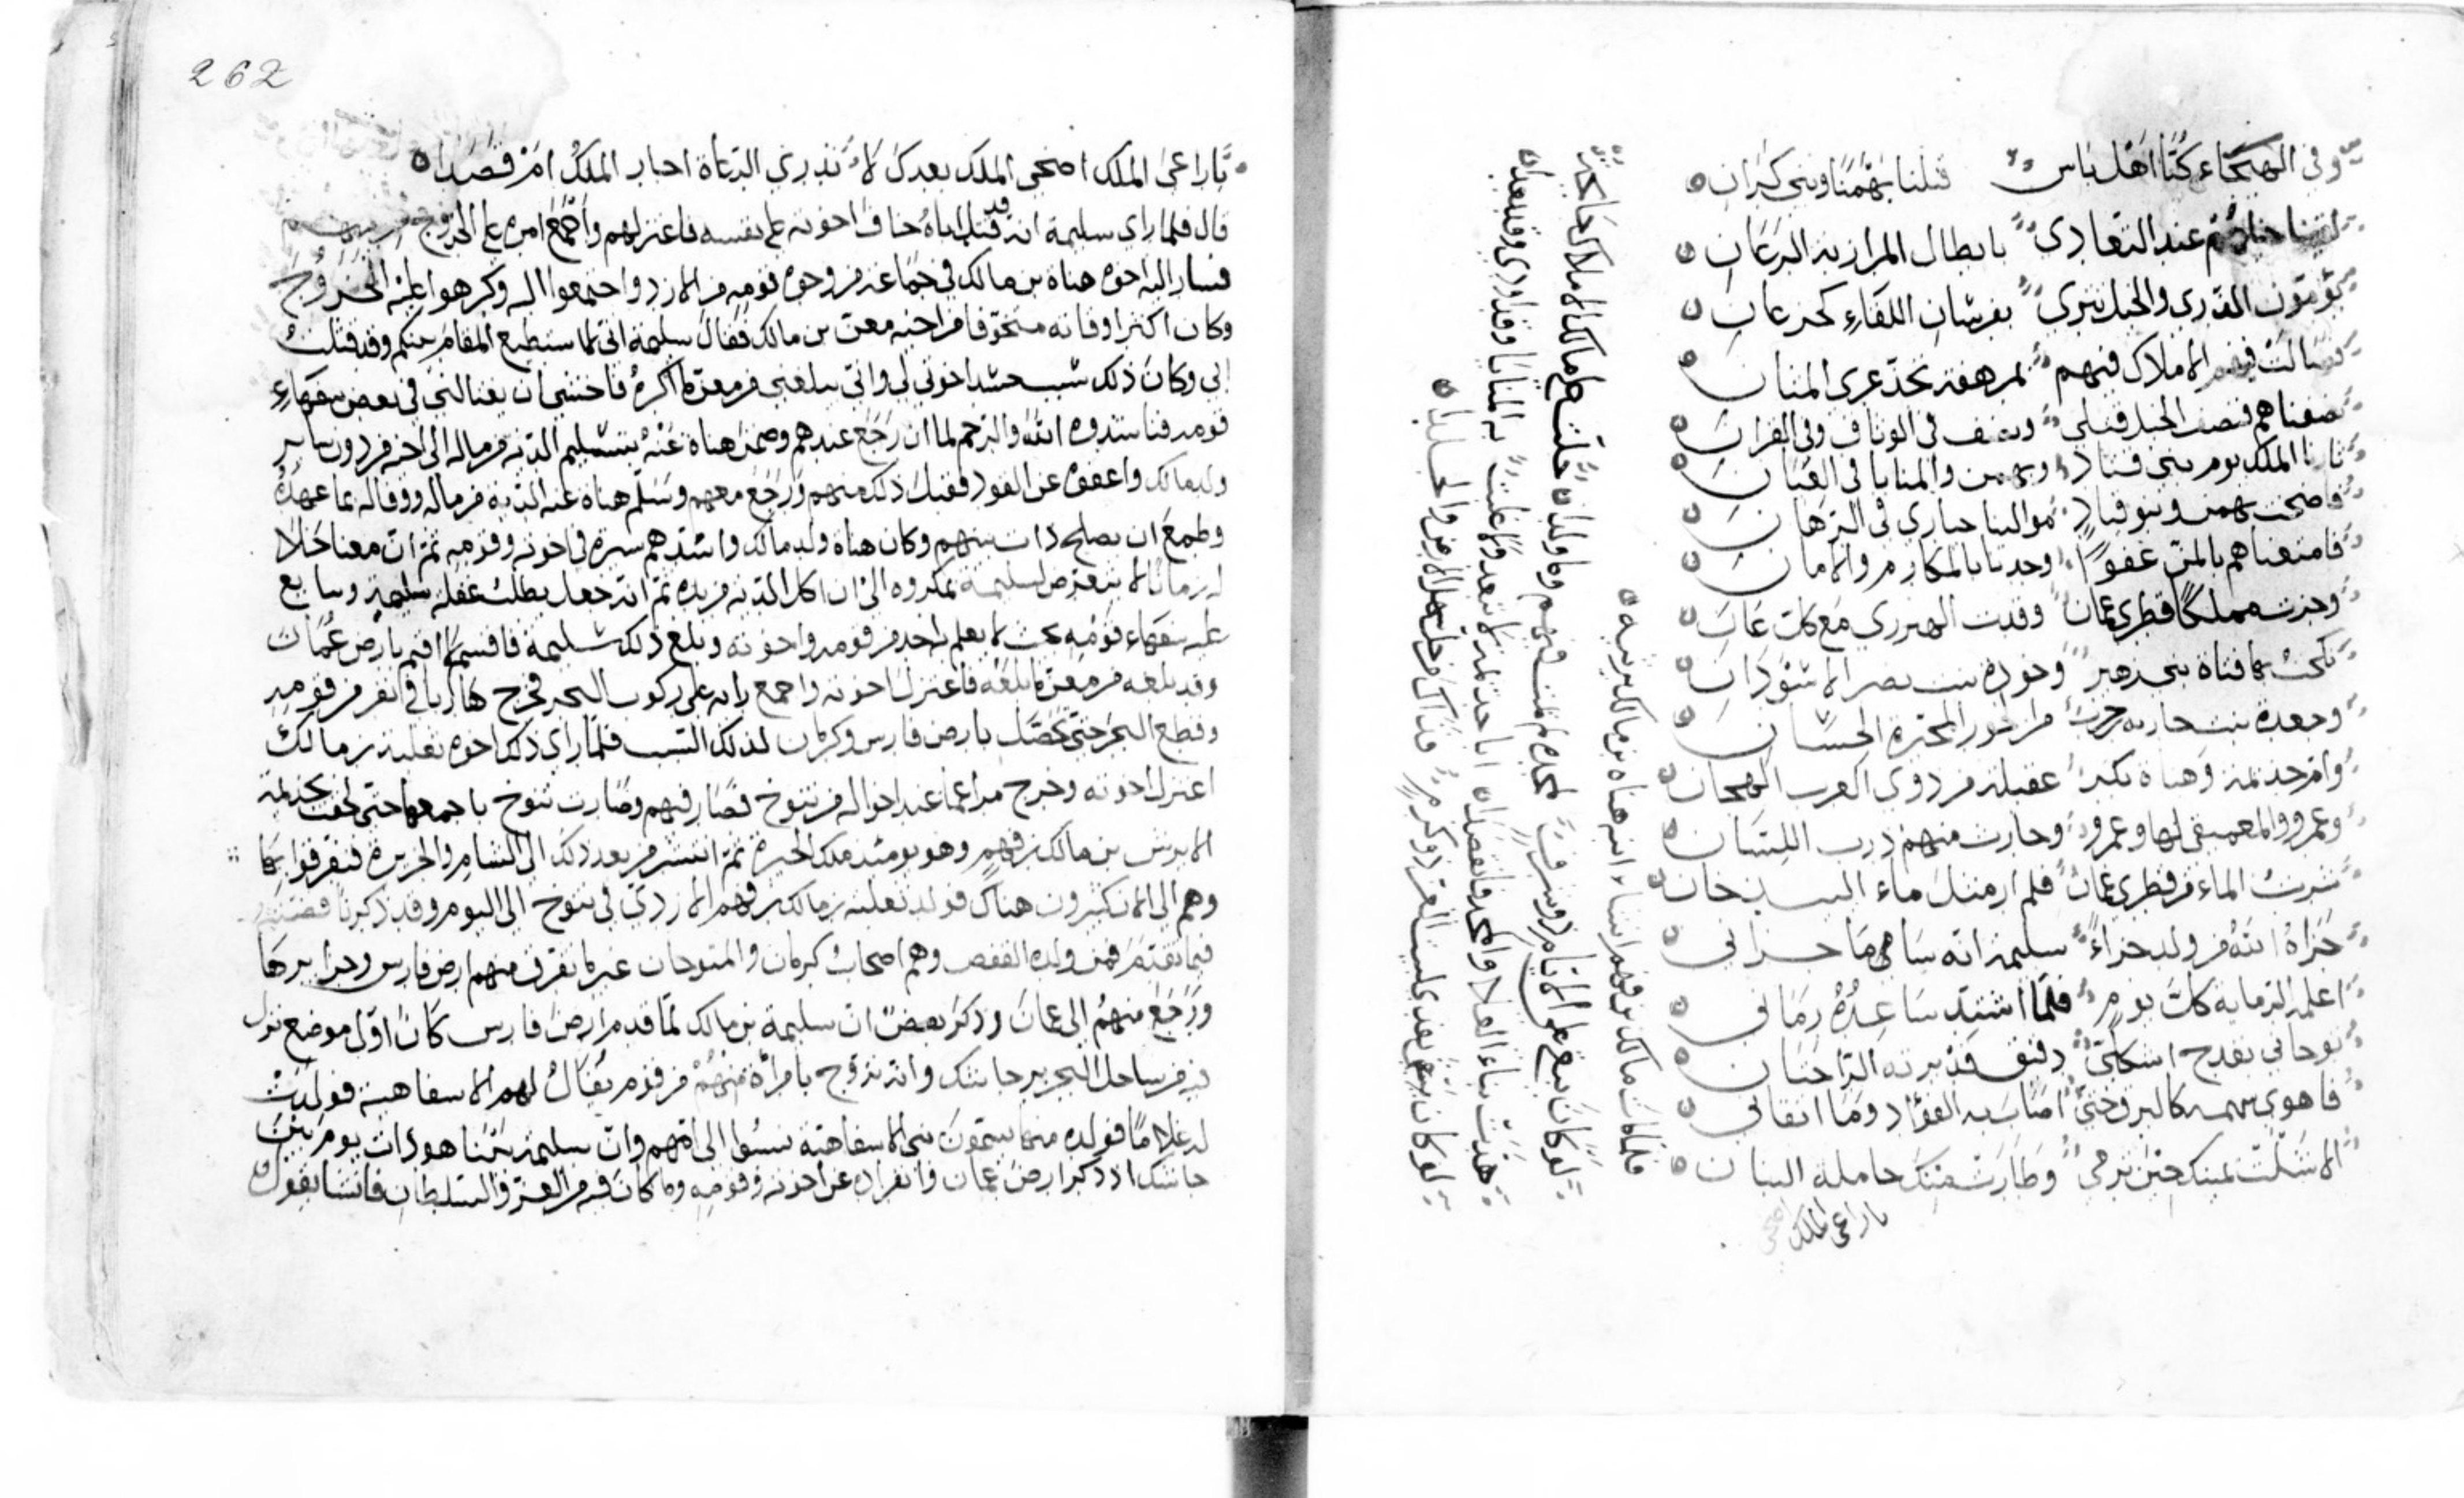 وفي الهيجاء كنا اهل باس قتلنا بهمنا وبني كيران
عند التعادي بابطال المرازبة الرعان
والخيل تبري بفرسان اللقاء كجدعان
الاملاك فيهم بمرهفة تخذ عرى المنان
فنصف الخيل قبلي ونصف في الوثاق وفي القران
الملك يوم بني قباد وبهمن والمنايا في العنان
فاضحت بهمن وبنو قباد موالينا حيارى في الرهان
فامتعناهم بالمن عفوا وجدنا بالمكارم والامان
وحزت مملكا قطري عمان وقدت الهبرزي مع كل عان
نكحت بها فتاة بني زهير وخودة بنت نصر الاسودان
وجعدة بنت حارثه حرب من الحور المخبره الحسان
وام جذيمة وهناة بكرا عقيلة من ذوي العرب الهجان
وعمرو والمعمقي لها وعمرو وحارث منهم درب اللسان
شربت الماء من قطري عمان فلم ار مثل ماء البيدخان
جزاه الله من ولد جزاء سليمة انه ساء ما جزاني
اعلمه الرماية كل يوم فلما اشتد ساعده رماني
توخاني بقدح اشكلي دقيق قد برته الراحتان
فاهوى سهمه كالبرق حتى اصاب به الفؤاد وما اتقاني
الا شلت يمينك حين ترمي وطارت منك حاملة البنان
يا راعي الملك اضحى
فلما مات مالك بن فهم انشاء ابنه هناه بن مالك يرثيه
لو كان يبقى على الايام ذو شرف لمجده لم يمت فهم وما ولدا حلت على مالك الاملاك جايحة
هدت بناء العلا والمجد فانقصدا ابا جذيمة لا تبعد ولا غلبت به المنايا وقد اودى وقد بعدا
لو كان يبقى بعدي لبيت العز ذو كرم فداك من حل سهل الارض والجلدا
262
يا راعي الملك اضحى الملك بعدك لا تدري الرعاة احار الملك ام قصدا
قال فلما راى سليمة انه قد قتل اباه خاف اخوته على نفسه فاعتزلهم واجمع امره على الخروج من بينهم
فسار اليه اخوه هناه بن مالك في جماعة من وجوه قومه من الازد واجتمعوا اليه وكرهوا عليه الخروج
وكان اكثر وفاته متخوفا من اخيه معن بن مالك فقال سليمة اني لا استطيع المقام بينكم وقد قتلت
ابي وكان ذلك سبب حسد اخوتي لي واني يبلغني من معن ما اكره فاخشى ان يغتالني في بعض سفهاء
قومه فناشدوه الله والرحم لما ان رجع عندهم وضمن هناة عنه بتسليم الدية من ماله الى اخيه من دون سائر
ولد مالك واعفوه عن القود فقبل ذلك منهم ورجع معهم وسلم هناة عنه الدية من ماله ووفا له بما عهده
وطمع ان يصلح ذات بينهم وكان هناة ولد مالك واشدهم سيرة في اخوته وقومه ثم ان معنا خلا
له زمانا لا يتعرض لسليمة بمكروه الى ان اكل الدية من يده ثم انه جعل يطلب غفلة سليمة وتتابع
عليه سفهاء قومه بحيث لا يعلم احد من قومه واخوته وبلغ ذلك سليمة فاقسم لا اقيم بارض عمان
وقد بلغه من معن ما بلغه فاعتزل اخوته واجمع رايه على ركوب البحر فخرج هاربا في نفر من قومه
وقطع البحر حتى حصل بارض فارس وكرمان لذلك السبب فلما راى ذلك اخوه ثعلبة بن مالك
اعتزل اخوته وخرج مراغما عند اخواله من تنوخ فصار فيهم وصارت تنوخ باجمعها حتى لحقت بجذيمة
الابرش بن مالك بن فهم وهو يومئذ ملك الحيرة ثم انتشر من بعد ذلك الى الشام والجزيرة فتفرقوا بها
وهم الى الان كثيرون هناك فولد ثعلبة بن مالك بن فهم الازدي في تنوخ الى اليوم وقد ذكرنا قصتهم
فيما تقدم فمن ولده القفص وهم اصحاب كرمان والمتوجان غير ما تفرق منهم ارض فارس وجزايرها
ورجع منهم الى عمان وذكر بعض ان سليمة بن مالك لما قدم ارض فارس كان اول موضع نزل
به من ساحل البحر بر جاشك وانه تزوج بامراة منهم من قوم يقال لهم الاسفاهية فولدت
له غلاما فولده منها يسمون بني الاسفاهية نسبوا الى امهم وان سليمة بينما هو ذات يوم بين
جاشك اذ ذكر ارض عمان وانفراده عن اخوته وقومه وما كان فيه من العز والسلطان فانشا يقول